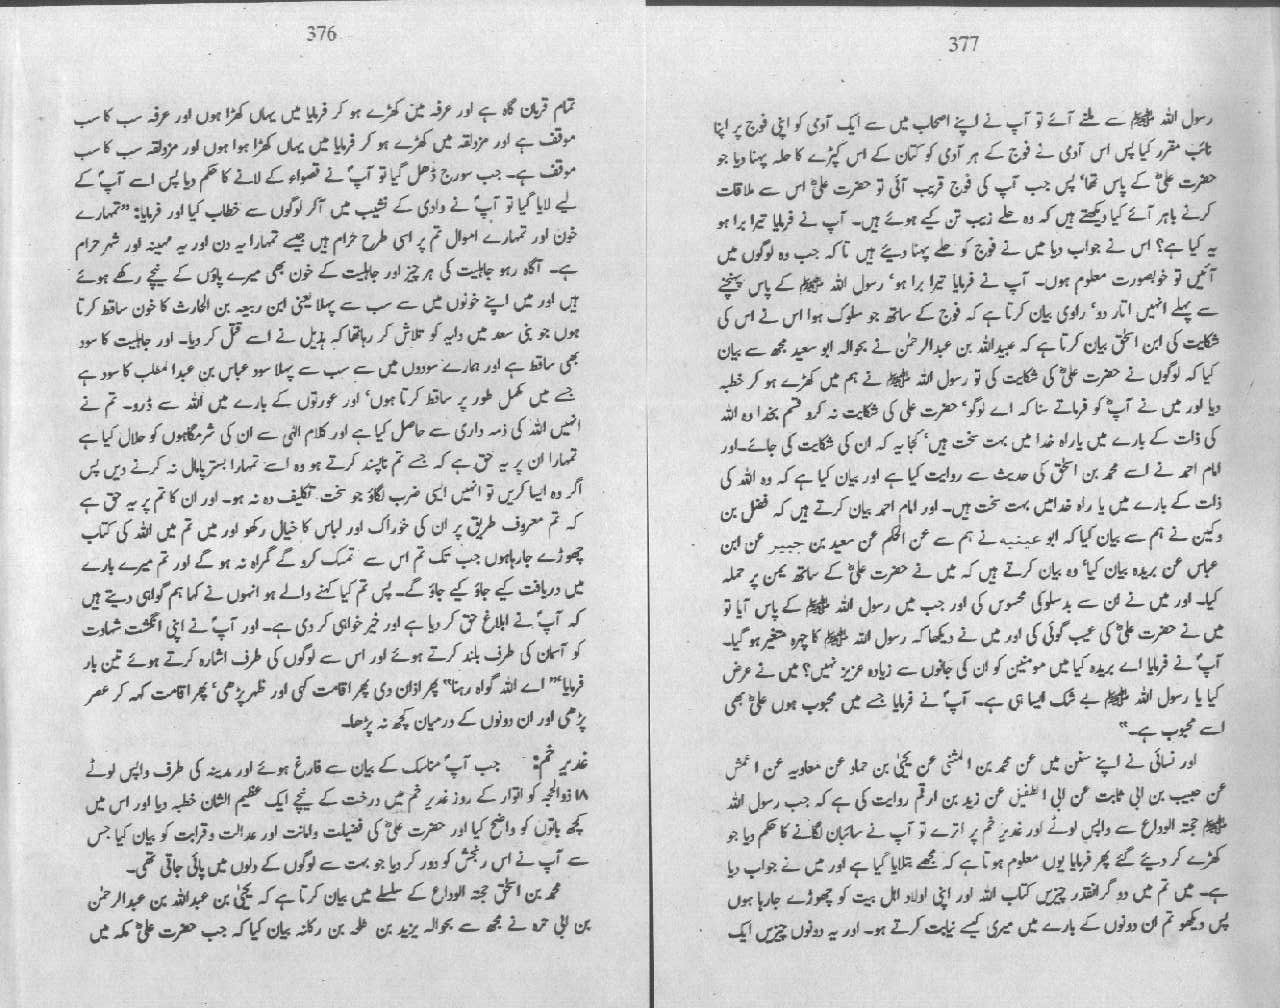 376
تمام قربان گاہ ہے اور عرفہ میں کھڑے ہو کر فرمایا میں یہاں کھڑا ہوں اور عرفہ سب کا سب
موقف ہے اور مزدلفہ میں کھڑے ہو کر فرمایا میں یہاں کھڑا ہوا ہوں اور مزدلفہ سب کا سب
موقف ہے۔ جب سورج ڈھل گیا تو آپؐ نے قصواء کے لانے کا حکم دیا پس اسے آپؐ کے
لیے لایا گیا تو آپؐ نے وادی کے نشیب میں آکر لوگوں سے خطاب کیا اور فرمایا: ”تمہارے
خون اور تمہارے اموال تم پر اسی طرح حرام ہیں جیسے تمہارا یہ دن اور یہ مہینہ اور شہر حرام
ہے۔ آگاہ رہو جاہلیت کی ہر چیز اور جاہلیت کے خون بھی میرے پاؤں کے نیچے رکھے ہوئے
ہیں اور میں اپنے خونوں میں سے سب سے پہلا یعنی ابن ربیعہ بن الحارث کا خون ساقط کرتا
ہوں جو بنی سعد میں دایہ کو تلاش کر رہا تھا کہ ہذیل نے اسے قتل کر دیا۔ اور جاہلیت کا سود
بھی ساقط ہے اور ہمارے سودوں میں سے سب سے پہلا سود عباس بن عبدالمطلب کا سود ہے
جسے میں مکمل طور پر ساقط کرتا ہوں‘ اور عورتوں کے بارے میں اللہ سے ڈرو۔ تم نے
انہیں اللہ کی ذمہ داری سے حاصل کیا ہے اور کلام الٰہی سے ان کی شرمگاہوں کو حلال کیا ہے
تمہارا ان پر یہ حق ہے کہ جسے تم ناپسند کرتے ہو وہ اسے تمہارا بستر پامال نہ کرنے دیں پس
اگر وہ ایسا کریں تو انہیں ایسی ضرب لگاؤ جو سخت تکلیف دہ نہ ہو۔ اور ان کا تم پر یہ حق ہے
کہ تم معروف طریق پر ان کی خوراک اور لباس کا خیال رکھو اور میں تم میں اللہ کی کتاب
چھوڑے جا رہا ہوں جب تک تم اس سے تمسک کرو گے گمراہ نہ ہو گے اور تم میرے بارے
میں دریافت کیے جاؤ کیے جاؤ گے۔ پس تم کیا کہنے والے ہو انہوں نے کہا ہم گواہی دیتے ہیں
کہ آپؐ نے ابلاغ حق کر دیا ہے اور خیر خواہی کر دی ہے۔ اور آپؐ نے اپنی انگشت شہادت
کو آسمان کی طرف بلند کرتے ہوئے اور اس سے لوگوں کی طرف اشارہ کرتے ہوئے تین بار
فرمایا‘ ”اے اللہ گواہ رہنا“ پھر اذان دی پھر اقامت کہی اور ظہر پڑھی‘ پھر اقامت کہہ کر عصر
پڑھی اور ان دونوں کے درمیان کچھ نہ پڑھا۔
غدیر خم: جب آپؐ مناسک کے بیان سے فارغ ہوئے اور مدینہ کی طرف واپس لوٹے
۱۸ ذوالحجہ کو اتوار کے روز غدیر خم میں درخت کے نیچے ایک عظیم الشان خطبہ دیا اور اس میں
کچھ باتوں کو واضح کیا اور حضرت علیؓ کی فضیلت و امانت اور عدالت و قرابت کو بیان کیا جس
سے آپ نے اس رنجش کو دور کر دیا جو بہت سے لوگوں کے دلوں میں پائی جاتی تھی۔
محمد بن اسحٰق حجۃ الوداع کے سلسلے میں بیان کرتا ہے کہ یحیٰی بن عبداللہ بن عبدالرحمٰن
بن ابی عمرہ نے مجھ سے بحوالہ یزید بن طلحہ بن رکانہ بیان کیا کہ جب حضرت علیؓ مکہ میں
377
رسول اللہ ﷺ سے ملنے آئے تو آپ نے اپنے اصحاب میں سے ایک آدمی کو اپنی فوج پر اپنا
نائب مقرر کیا پس اس آدمی نے فوج کے ہر آدمی کو کتان کے اس کپڑے کا حلہ پہنا دیا جو
حضرت علیؓ کے پاس تھا‘ پس جب آپ کی فوج قریب آئی تو حضرت علیؓ اس سے ملاقات
کرنے باہر آئے کیا دیکھتے ہیں کہ وہ حلے زیب تن کیے ہوئے ہیں۔ آپ نے فرمایا تیرا برا ہو
یہ کیا ہے؟ اس نے جواب دیا میں نے فوج کو حلے پہنا دیئے ہیں تاکہ جب وہ لوگوں میں
آئیں تو خوبصورت معلوم ہوں۔ آپ نے فرمایا تیرا برا ہو‘ رسول اللہ ﷺ کے پاس پہنچنے
سے پہلے انہیں اتار دو‘ راوی بیان کرتا ہے کہ فوج کے ساتھ جو سلوک ہوا اس نے اس کی
شکایت کی ابن اسحٰق بیان کرتا ہے کہ عبیداللہ بن عبدالرحمٰن نے بحوالہ ابو سعید مجھ سے بیان
کیا کہ لوگوں نے حضرت علیؓ کی شکایت کی تو رسول اللہ ﷺ نے ہم میں کھڑے ہو کر خطبہ
دیا اور میں نے آپؐ کو فرماتے سنا کہ اے لوگو‘ حضرت علی کی شکایت نہ کرو قسم بخدا وہ اللہ
کی ذات کے بارے میں یا راہ خدا میں بہت سخت ہیں‘ کجا یہ کہ ان کی شکایت کی جائے۔ اور
امام احمد نے اسے محمد بن اسحٰق کی حدیث سے روایت کیا ہے اور بیان کیا ہے کہ وہ اللہ کی
ذات کے بارے میں یا راہ خدا میں بہت سخت ہیں۔ اور امام احمد بیان کرتے ہیں کہ فضل بن
وکین نے ہم سے بیان کیا کہ ابو عینیہ نے ہم سے عن الحکم عن سعید بن جبیر عن ابن
عباس عن بریدہ بیان کیا‘ وہ بیان کرتے ہیں کہ میں نے حضرت علیؓ کے ساتھ یمن پر حملہ
کیا۔ اور میں نے ان سے بدسلوکی محسوس کی اور جب میں رسول اللہ ﷺ کے پاس آیا تو
میں نے حضرت علیؓ کی عیب گوئی کی اور میں نے دیکھا کہ رسول اللہ ﷺ کا چہرہ متغیر ہو گیا۔
آپؐ نے فرمایا اے بریدہ کیا میں مومنین کو ان کی جانوں سے زیادہ عزیز نہیں؟ میں نے عرض
کیا یا رسول اللہ ﷺ بے شک ایسا ہی ہے۔ آپؐ نے فرمایا جسے میں محبوب ہوں علیؓ بھی
اسے محبوب ہے۔“
اور نسائی نے اپنے سنن میں عن محمد بن المثنی عن یحیٰی بن حماد عن معاویہ عن اعمش
عن حبیب بن ابی ثابت عن ابی الطفیل عن زید بن ارقم روایت کی ہے کہ جب رسول اللہ
ﷺ حجتہ الوداع سے واپس لوٹے اور غدیر خم پر اترے تو آپ نے سائبان لگانے کا حکم دیا جو
کھڑے کر دیئے گئے پھر فرمایا یوں معلوم ہوتا ہے کہ مجھے بتلایا گیا ہے اور میں نے جواب دیا
ہے۔ میں تم میں دو گرانقدر چیزیں کتاب اللہ اور اپنی اولاد اہل بیت کو چھوڑے جا رہا ہوں
پس دیکھو تم ان دونوں کے بارے میں میری کیسے نیابت کرتے ہو۔ اور یہ دونوں چیزیں ایک